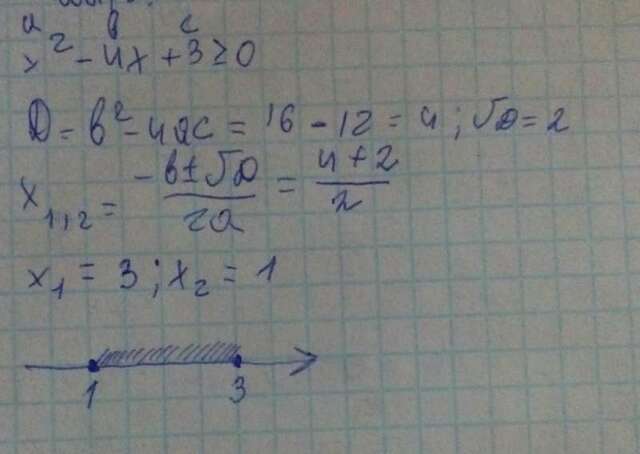 a в c
x² - 4x + 3 ≥ 0
D = в² - 4ac = 16 - 12 = 4 ; √D = 2
x₁,₂ = (-в ± √D)/(2a) = (4 + 2)/2
x₁ = 3 ; x₂ = 1
1 3